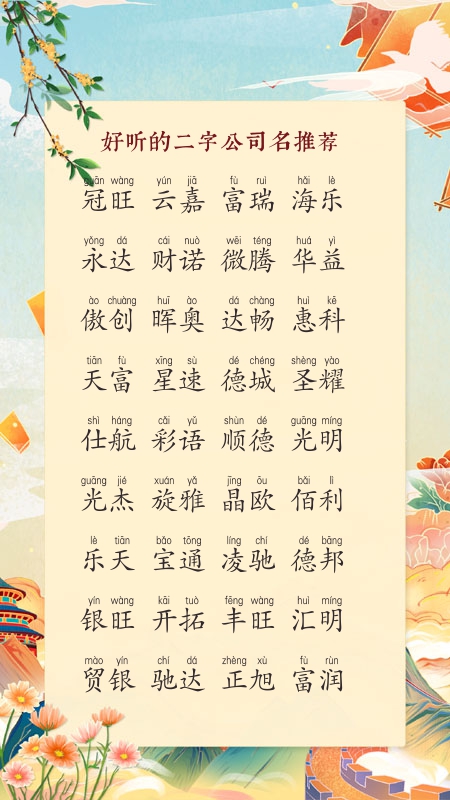 好听的二字公司名推荐
guān wàng yún jiā fù ruì hǎi lè
冠旺 云嘉 富瑞 海乐
yǒng dá cái nuò wēi téng huá yì
永达 财诺 微腾 华益
ào chuàng huī ào dá chàng huì kē
傲创 晖奥 达畅 惠科
tiān fù xīng sù dé chéng shèng yào
天富 星速 德城 圣耀
shì háng cǎi yǔ shùn dé guāng míng
仕航 彩语 顺德 光明
guāng jié xuán yǎ jīng ōu bǎi lì
光杰 旋雅 晶欧 佰利
lè tiān bǎo tōng líng chí dé bāng
乐天 宝通 凌驰 德邦
yín wàng kāi tuò fēng wàng huì míng
银旺 开拓 丰旺 汇明
mào yín chí dá zhèng xù fù rùn
贸银 驰达 正旭 富润